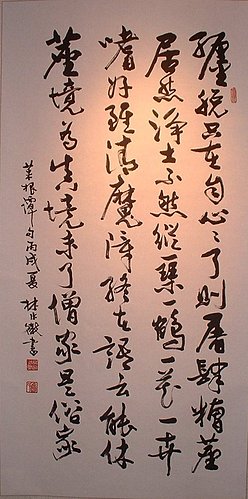 纏脫只在自心々了則屠肆糟廛
居然淨土不然縱一琴一鶴一花一卉
嗜好雖清魔障終在語云能休
塵境為真境未了僧家是俗家
菜根譚句丙戌夏 林書